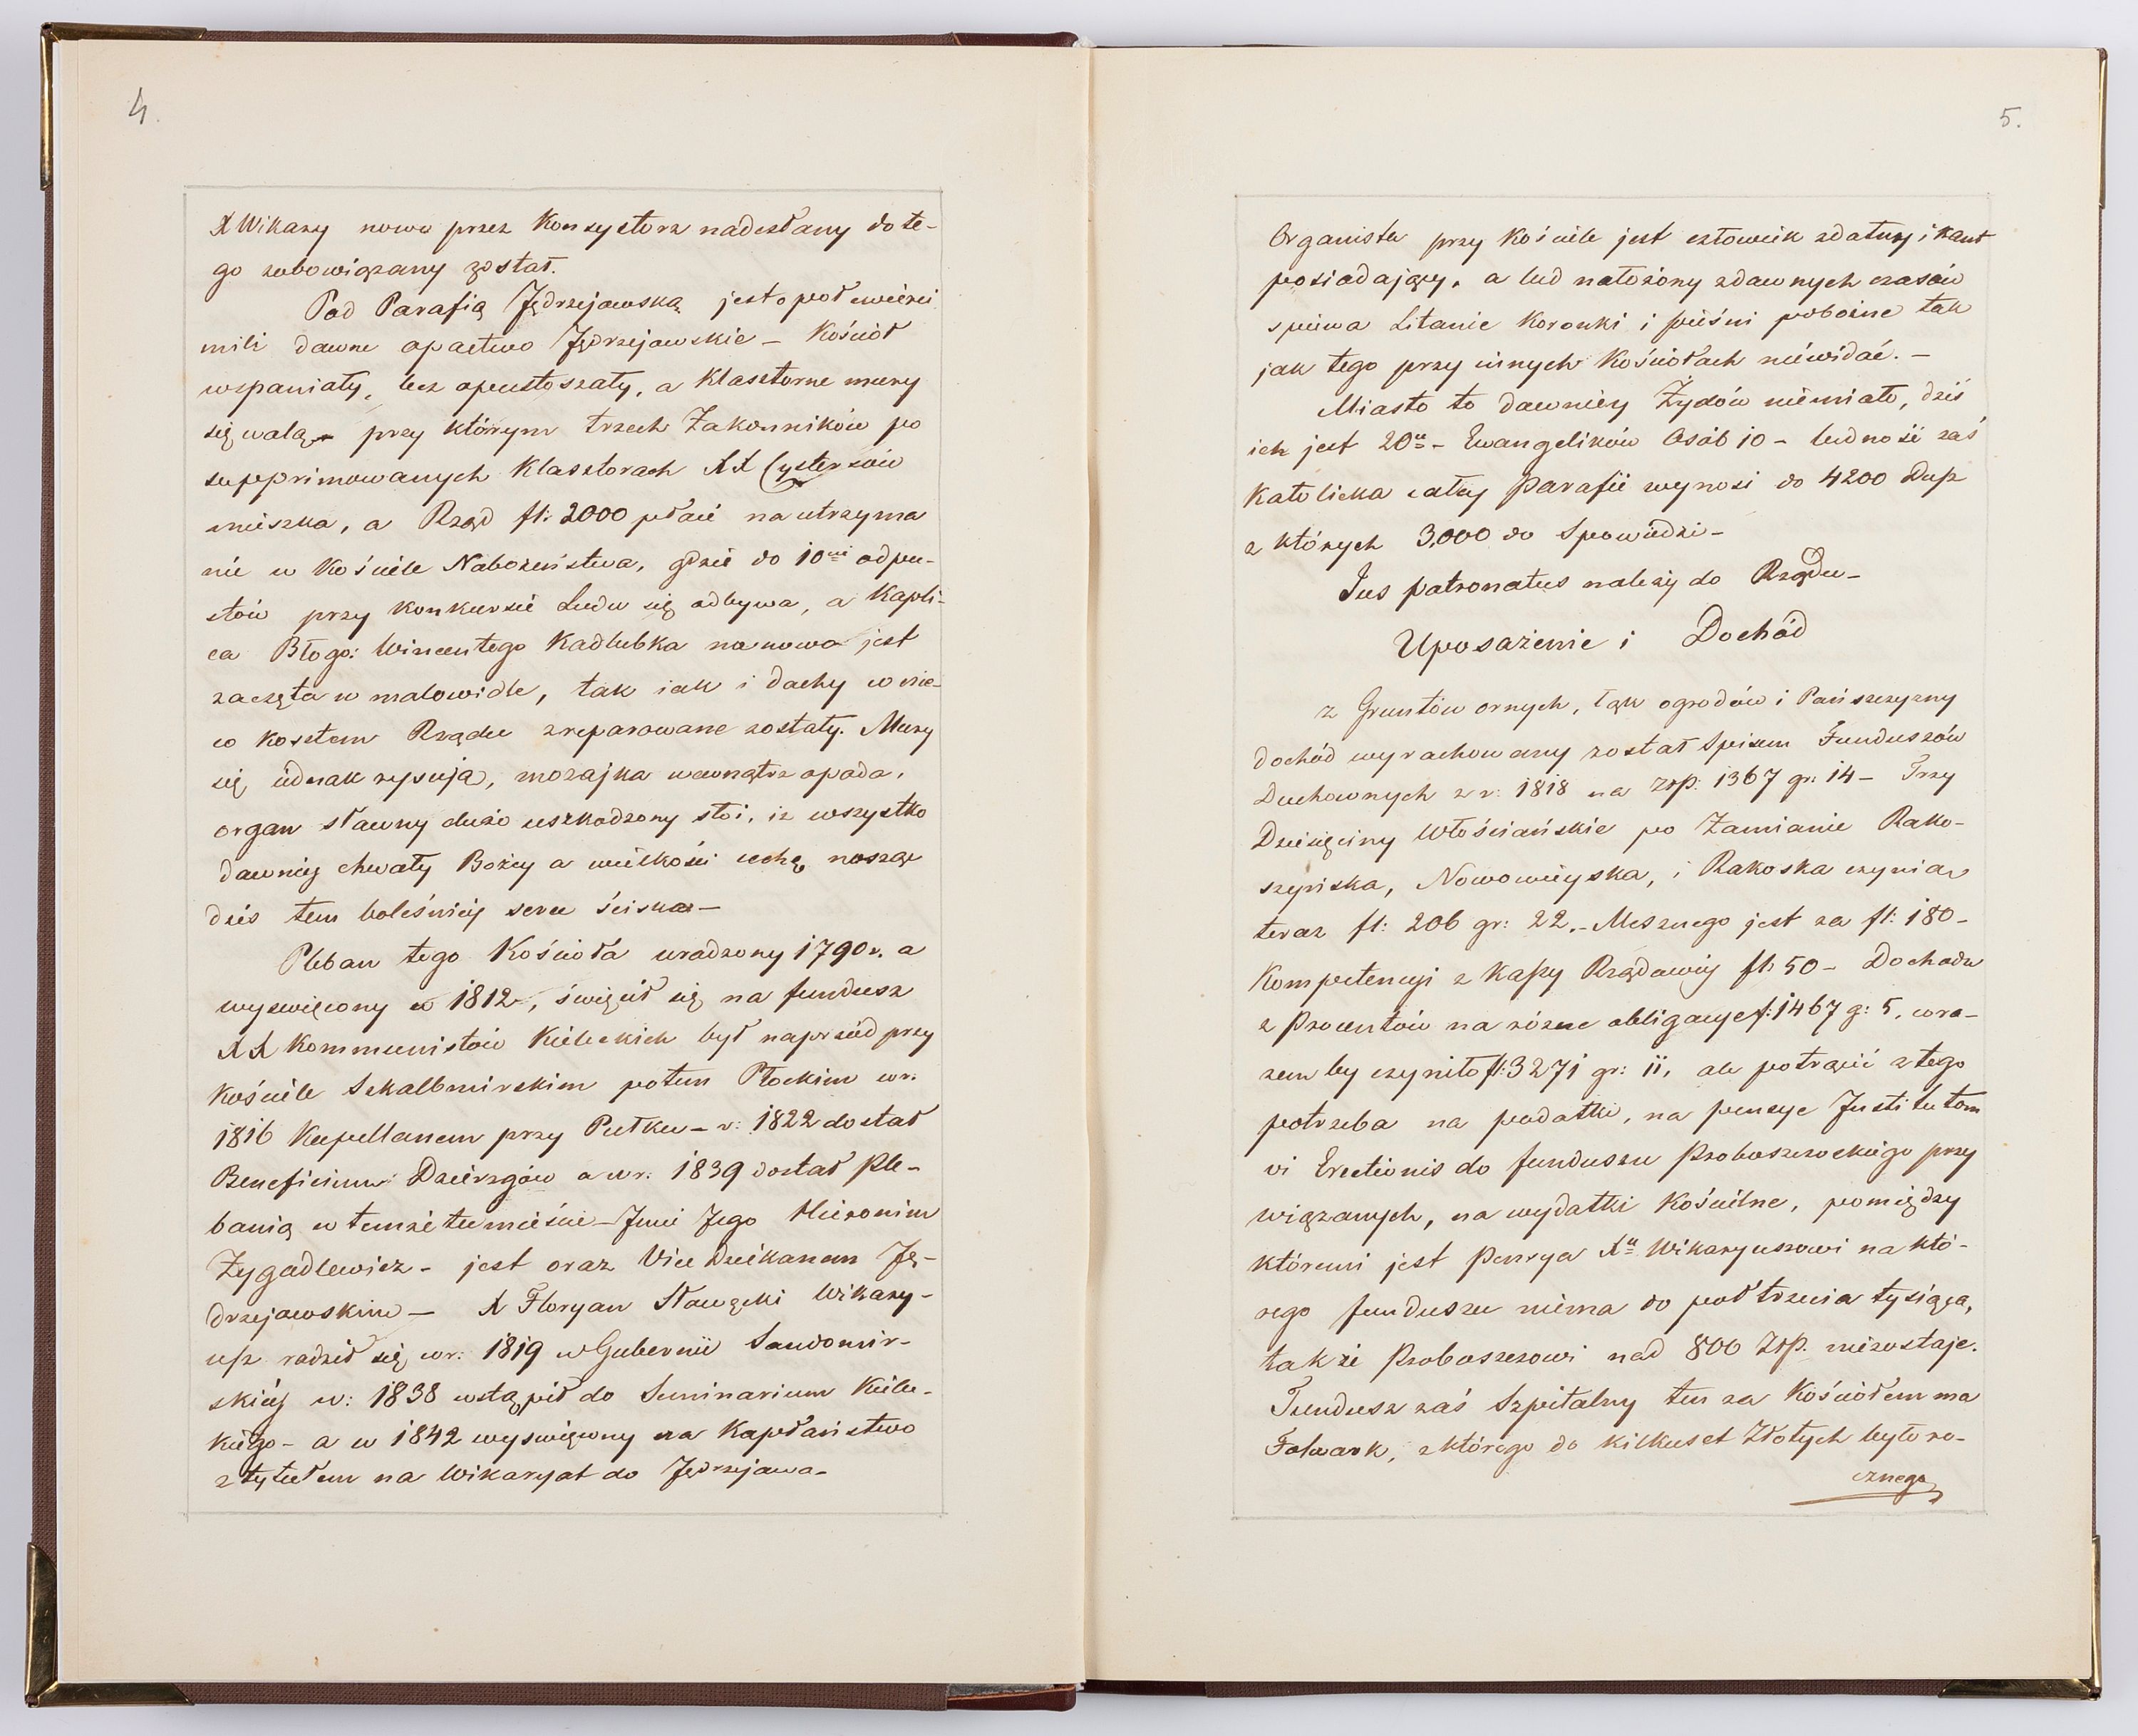 4.
X Wikary nowo przez Konsystorz nadesłany do te-
go zobowiązany został.
Pod Parafią Jędrzejowską jest o pół ćwierci
mili dawne opactwo Jędrzejowskie – Kościół
wspaniały, lecz opustoszały, a Klasztorne mury
się walą – przy którym trzech Zakonników po
supprimowanych Klasztorach XX Cystersów
mieszka, a Rząd fl: 2000 płaci na utrzyma
nie w Kościele Nabożeństwa, gdzie do 10ciu odpu-
stów przy konkursie Ludu się odbywa, a Kapli-
ca Błogo: Wincentego Kadlubka na nowo jest
zaczęta w malowidle, tak iak i dachy w nie-
co kosztem Rządu zreparowane zostały. Mury
się iednak rysują, mozajka wewnątrz opada,
organ sławny dużo uszkodzony stoi, iż wszystko
dawniey chwały Bożey a wielkości cechę nosząc
dziś tem boleśniey serce ściska –
Pleban tego Kościoła urodzony 1790 r. a
wyswięcony w 1812, święcił się na fundusz
XX Kommunistów Kieleckich był naprzód przy
Kościele Skalbmirskim potem Płockim w r.
1816 Kapellanem przy Pułku – r: 1822 dostał
Beneficium Dzierzgów a w r: 1839 dostał Ple-
banią w temże tu mieście – Imie Jego Hieronim
Zygadlewicz – jest oraz Vice Dziekanem Ję-
drzejowskim – X Floryan Sławęcki Wikary-
usz rodził się w r: 1819 w Gubernii Sandomir-
skiéj w: 1838 wstąpił do Seminarium Kiele-
kiégo – a w 1842 wyswięcony na Kapłaństwo
z tytułem na Wikaryat do Jędrzejowa –
5.
Organista przy Kościele jest człowiek zdatny i kant
posiadający, a lud nałożony zdawnych czasów
spiéwa Litanie Koronki i pieśni pobożne tak
jak tego przy innych Kościołach niéwidać. –
Miasto to dawniéy Żydów niémiało, dziś
ich jest 20u – Ewangelików Osób 10 – ludność zaś
Katolicka całey Parafii wynosi do 4200 Dusz
z których 3,000 do Spowiédzi –
Jus patronatus należy do Rządu –
Uposażenie i Dochód
z Gruntów ornych, łąk ogrodów i Pańszczyzny
dochód wyrachowany został Spisem Funduszów
Duchownych z r: 1818 na Złp: 1367 gr: 14 – Trzy
Dziesięciny Włościańskie po Zamianie Rako-
szyńska, Nowowieyska, i Rakoska czynią
teraz fl: 206 gr: 22. – Mesznego jest za fl: 180 –
Kompetencyi z Kassy Rządowéy fl: 50 – Dochodu
z Procentów na różne obligacye f: 1467 g: 5, wra-
zem by czyniło fl: 3271 gr: 11, ale potrącić z tego
potrzeba na podatki, na pensye Institutom
vi Erectionis do funduszu Proboszczowskiégo przy
wiązanych, na wydatki Kościelne, pomiędzy
któremi jest Pensya Xu Wikaryuszowi na któ-
rego funduszu niéma do pół trzecia tysiąca,
tak że Proboszczowi nad 800 Złp. niezostaje.
Fundusz zaś Szpitalny tu za Kościołem ma
Folwark, z którego do kilkuset Złotych było ro-
cznego